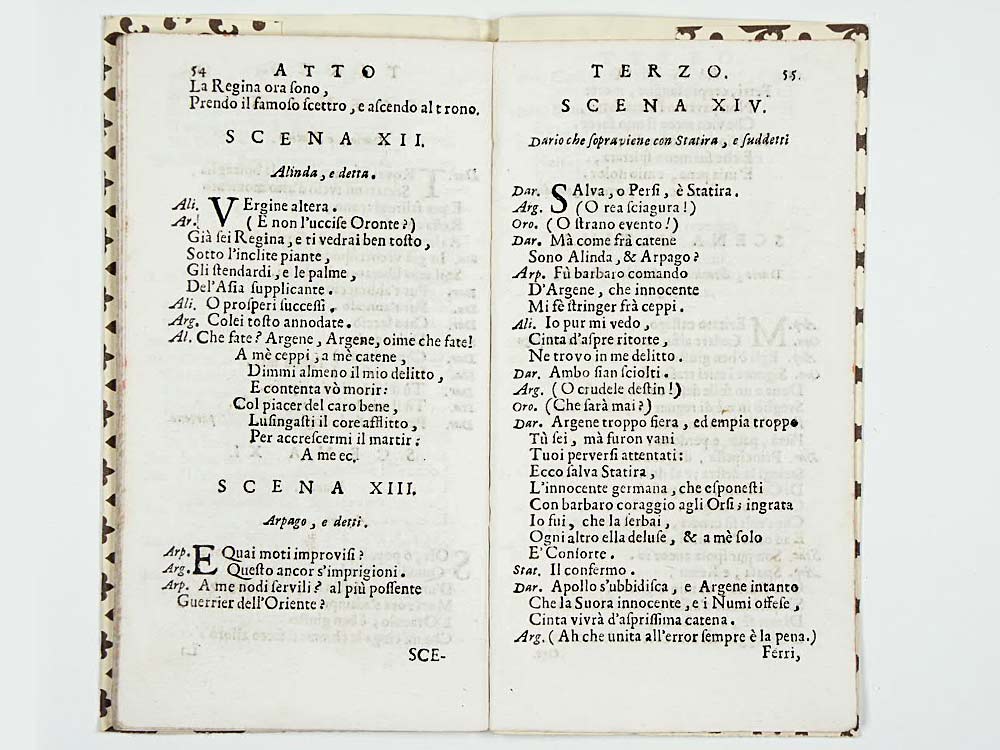 54 ATTO
La Regina ora sono,
Prendo il famoso scettro, e ascendo al trono.
SCENA XII.
Alinda, e detta.
Ali. VErgine altera.
Ar. (E non l'uccise Oronte?)
Già sei Regina, e ti vedrai ben tosto,
Sotto l'inclite piante,
Gli stendardi, e le palme,
Del'Asia supplicante.
Ali. O prosperi successi.
Arg. Colei tosto annodate.
Al. Che fate? Argene, Argene, oime che fate!
A mè ceppi, a mè catene,
Dimmi almeno il mio delitto,
E contenta vò morir:
Col piacer del caro bene,
Lusingasti il core afflitto,
Per accrescermi il martir:
A me ec.
SCENA XIII.
Arpago, e detti.
Arp. E Quai moti improvisi?
Arg. Questo ancor s'imprigioni.
Arp. A me nodi servili? al più possente
Guerrier dell'Oriente?
SCE-
TERZO. 55.
SCENA XIV.
Dario che sopraviene con Statira, e suddetti
Dar. SAlva, o Persi, è Statira.
Arg. (O rea sciagura!)
Oro. (O strano evento!)
Dar. Mà come frà catene
Sono Alinda, & Arpago?
Arp. Fù barbaro comando
D'Argene, che innocente
Mi fè stringer frà ceppi.
Ali. Io pur mi vedo,
Cinta d'aspre ritorte,
Ne trovo in me delitto.
Dar. Ambo sian sciolti.
Arg. (O crudele destin!)
Oro. (Che sarà mai?)
Dar. Argene troppo fiera, ed empia troppo
Tù sei, mà furon vani
Tuoi perversi attentati:
Ecco salva Statira,
L'innocente germana, che esponesti
Con barbaro coraggio agli Orsi; ingrata
Io fui, che la serbai,
Ogni altro ella deluse, & a mè solo
E' Consorte.
Stat. Il confermo.
Dar. Apollo s'ubbidisca, e Argene intanto
Che la Suora innocente, e i Numi offese,
Cinta vivrà d'asprissima catena.
Arg. (Ah che unita all'error sempre è la pena.)
Ferri,